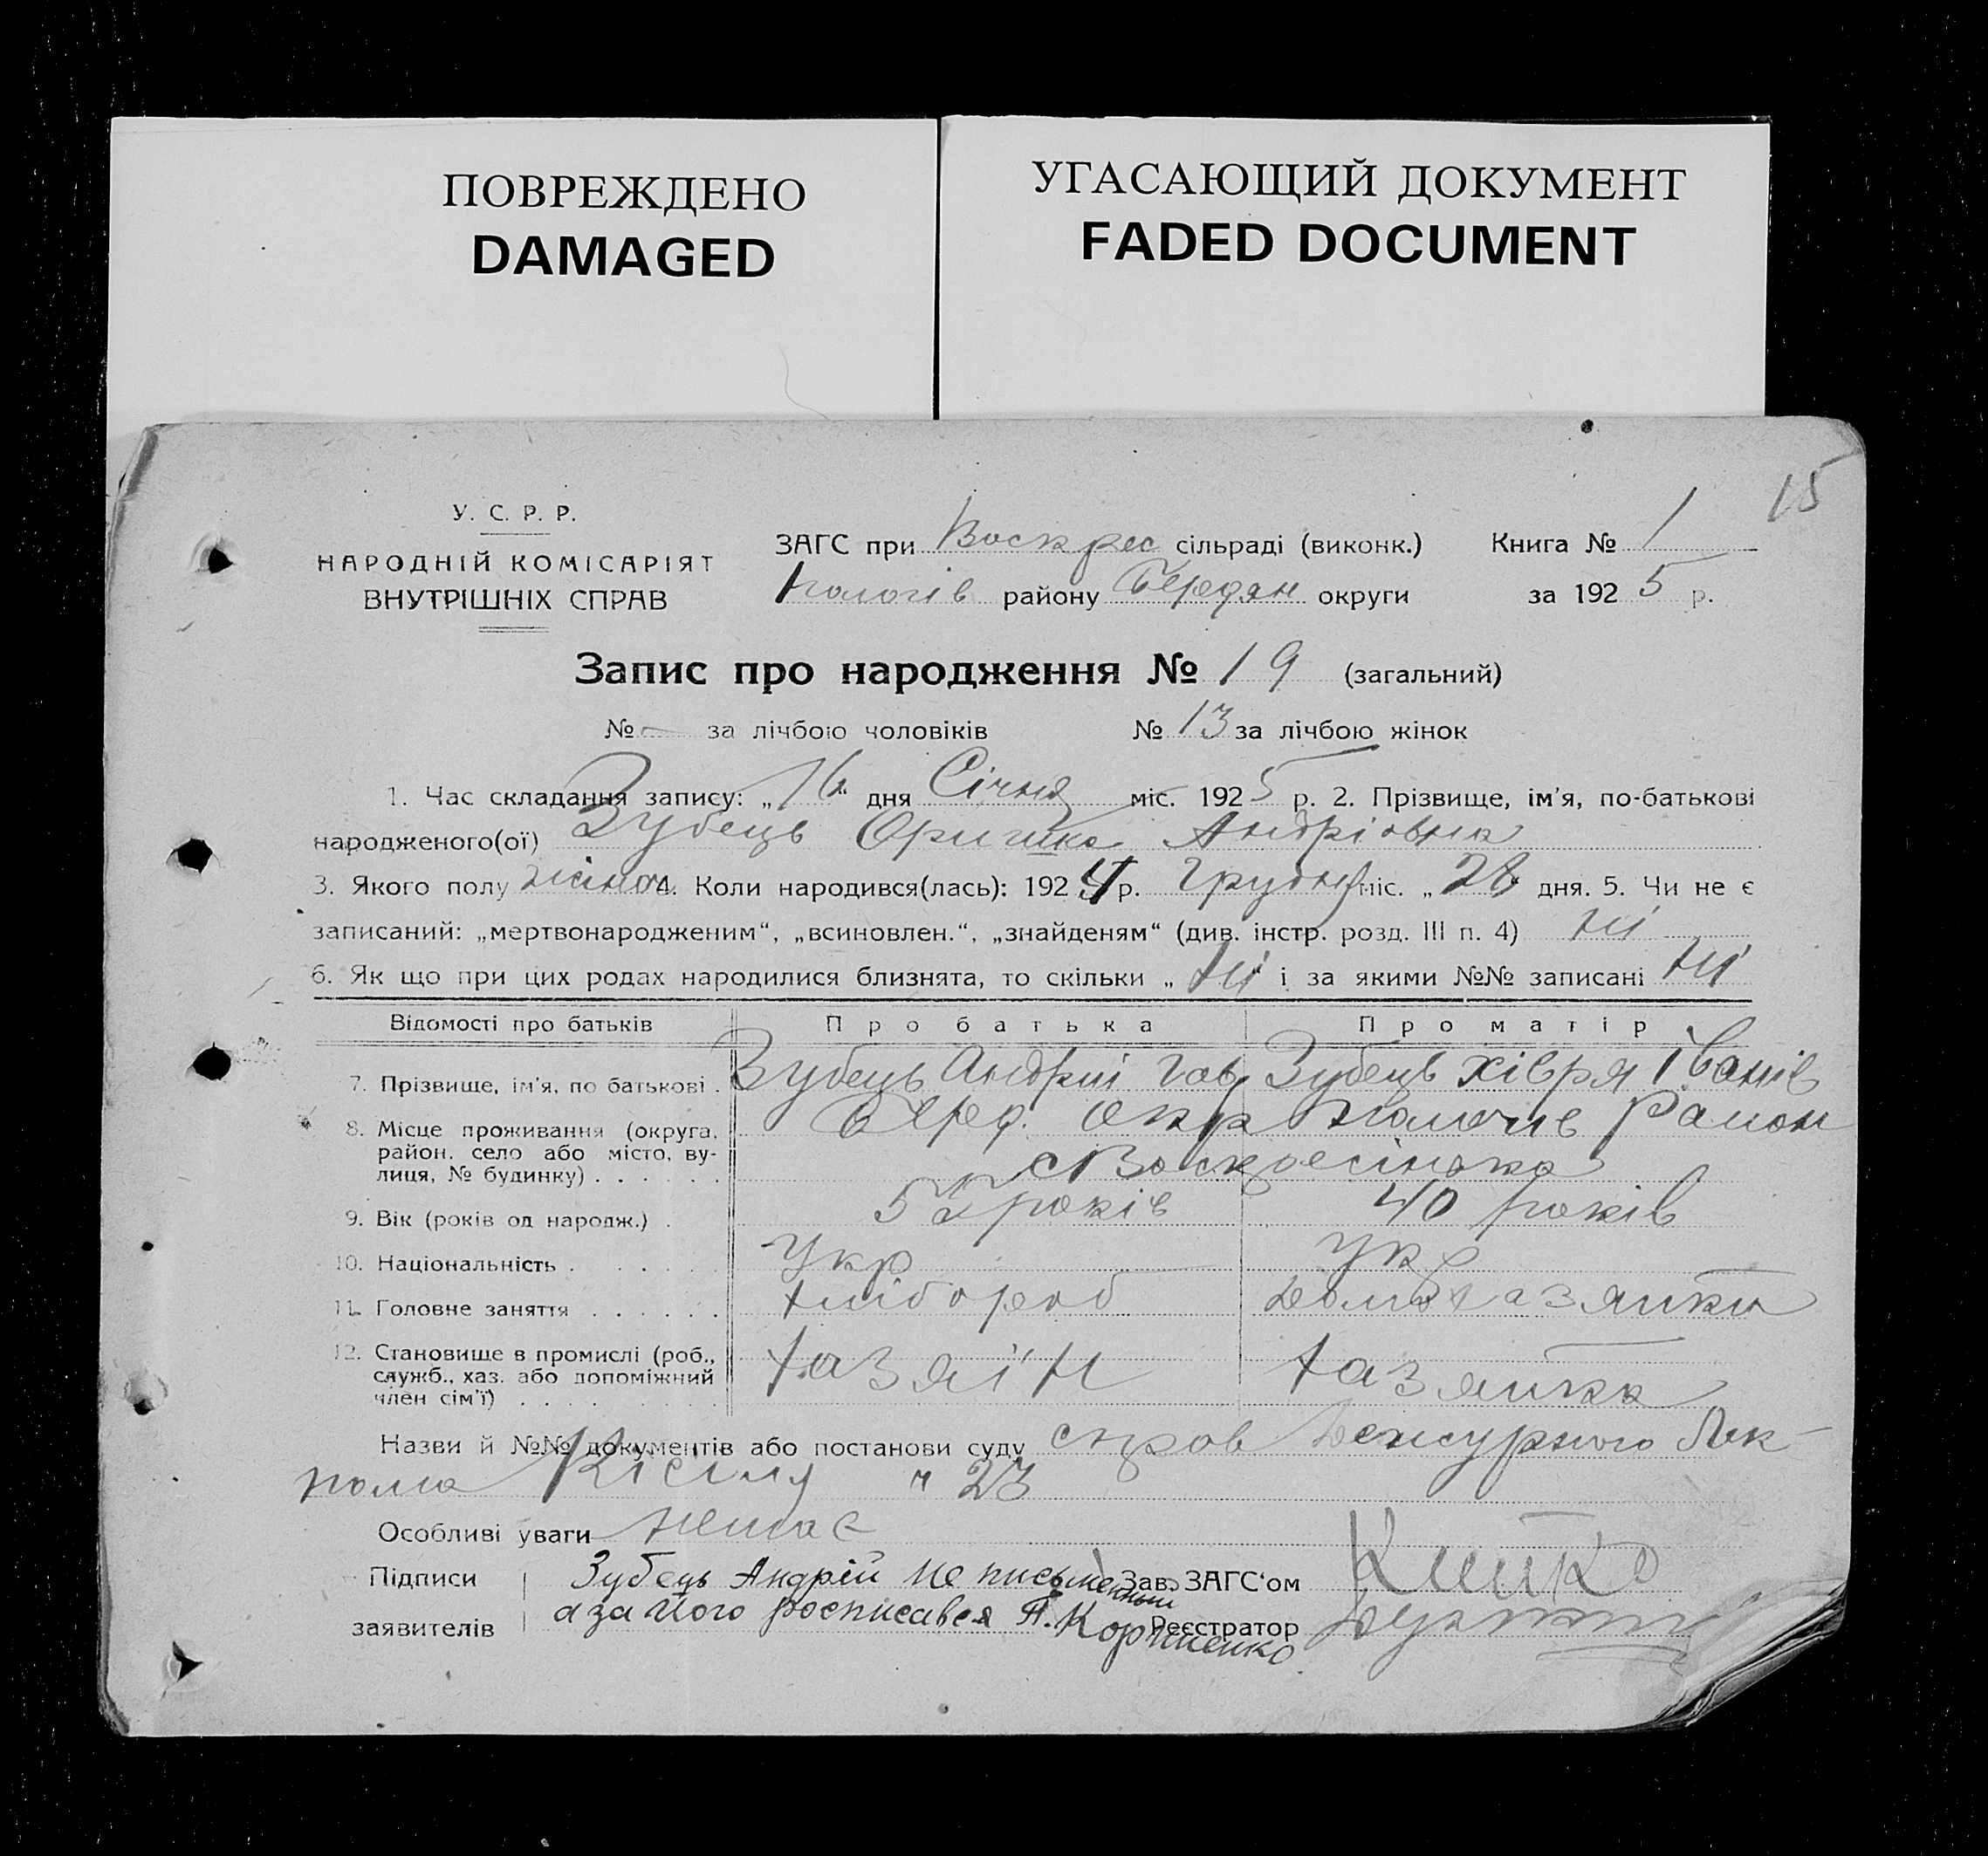 ПОВРЕЖДЕНО
DAMAGED
УГАСАЮЩИЙ ДОКУМЕНТ
FADED DOCUMENT
15
У. С. Р. Р.
НАРОДНІЙ КОМІСАРІЯТ
ВНУТРІШНІХ СПРАВ
ЗАГС при Воскрес сільраді (виконк.) Книга № 1
Пологів району Бердян округи за 1925 р.
Запис про народження № 19 (загальний)
№ — за лічбою чоловіків № 13 за лічбою жінок
1. Час складання запису: „16“ дня Січня міс. 1925 р. 2. Прізвище, ім'я, по-батькові
народженого(ої) Зубець Оришка Андріовна
3. Якого полу жіноч 4. Коли народився(лась): 1924 р. Грудня міс. „28“ дня. 5. Чи не є
записаний: „мертвонародженим“, „всиновлен.“, „знайденям“ (див. інстр. розд. III п. 4) ні
6. Як що при цих родах народилися близнята, то скільки „ні“ і за якими №№ записані ні
Відомості про батьків Про батька Про матір
7. Прізвище, ім'я, по батькові . Зубець Андрій Гав Зубець Хівря Іванів
8. Місце проживання (округа, Беред. окр Пологів Район
район, село або місто, ву- с Воскресінька
лиця, № будинку) . . . . . .
9. Вік (років од народж.) . 55 років 40 років
10. Національність . . . . . Укр Укр
11. Головне заняття . . . . . . хлібороб домохазяйка
12. Становище в промислі (роб., хазяїн хазяйка
служб., хаз. або допоміжний
член сім'ї) . . . . . . .
Назви й №№ документів або постанови суду справ Дежурного
№ 23
Особливі уваги немає
Підписи Зубець Андрій не письменный Зав. ЗАГС'ом
заявителів а за його росписався П. Корниенко Реєстратор